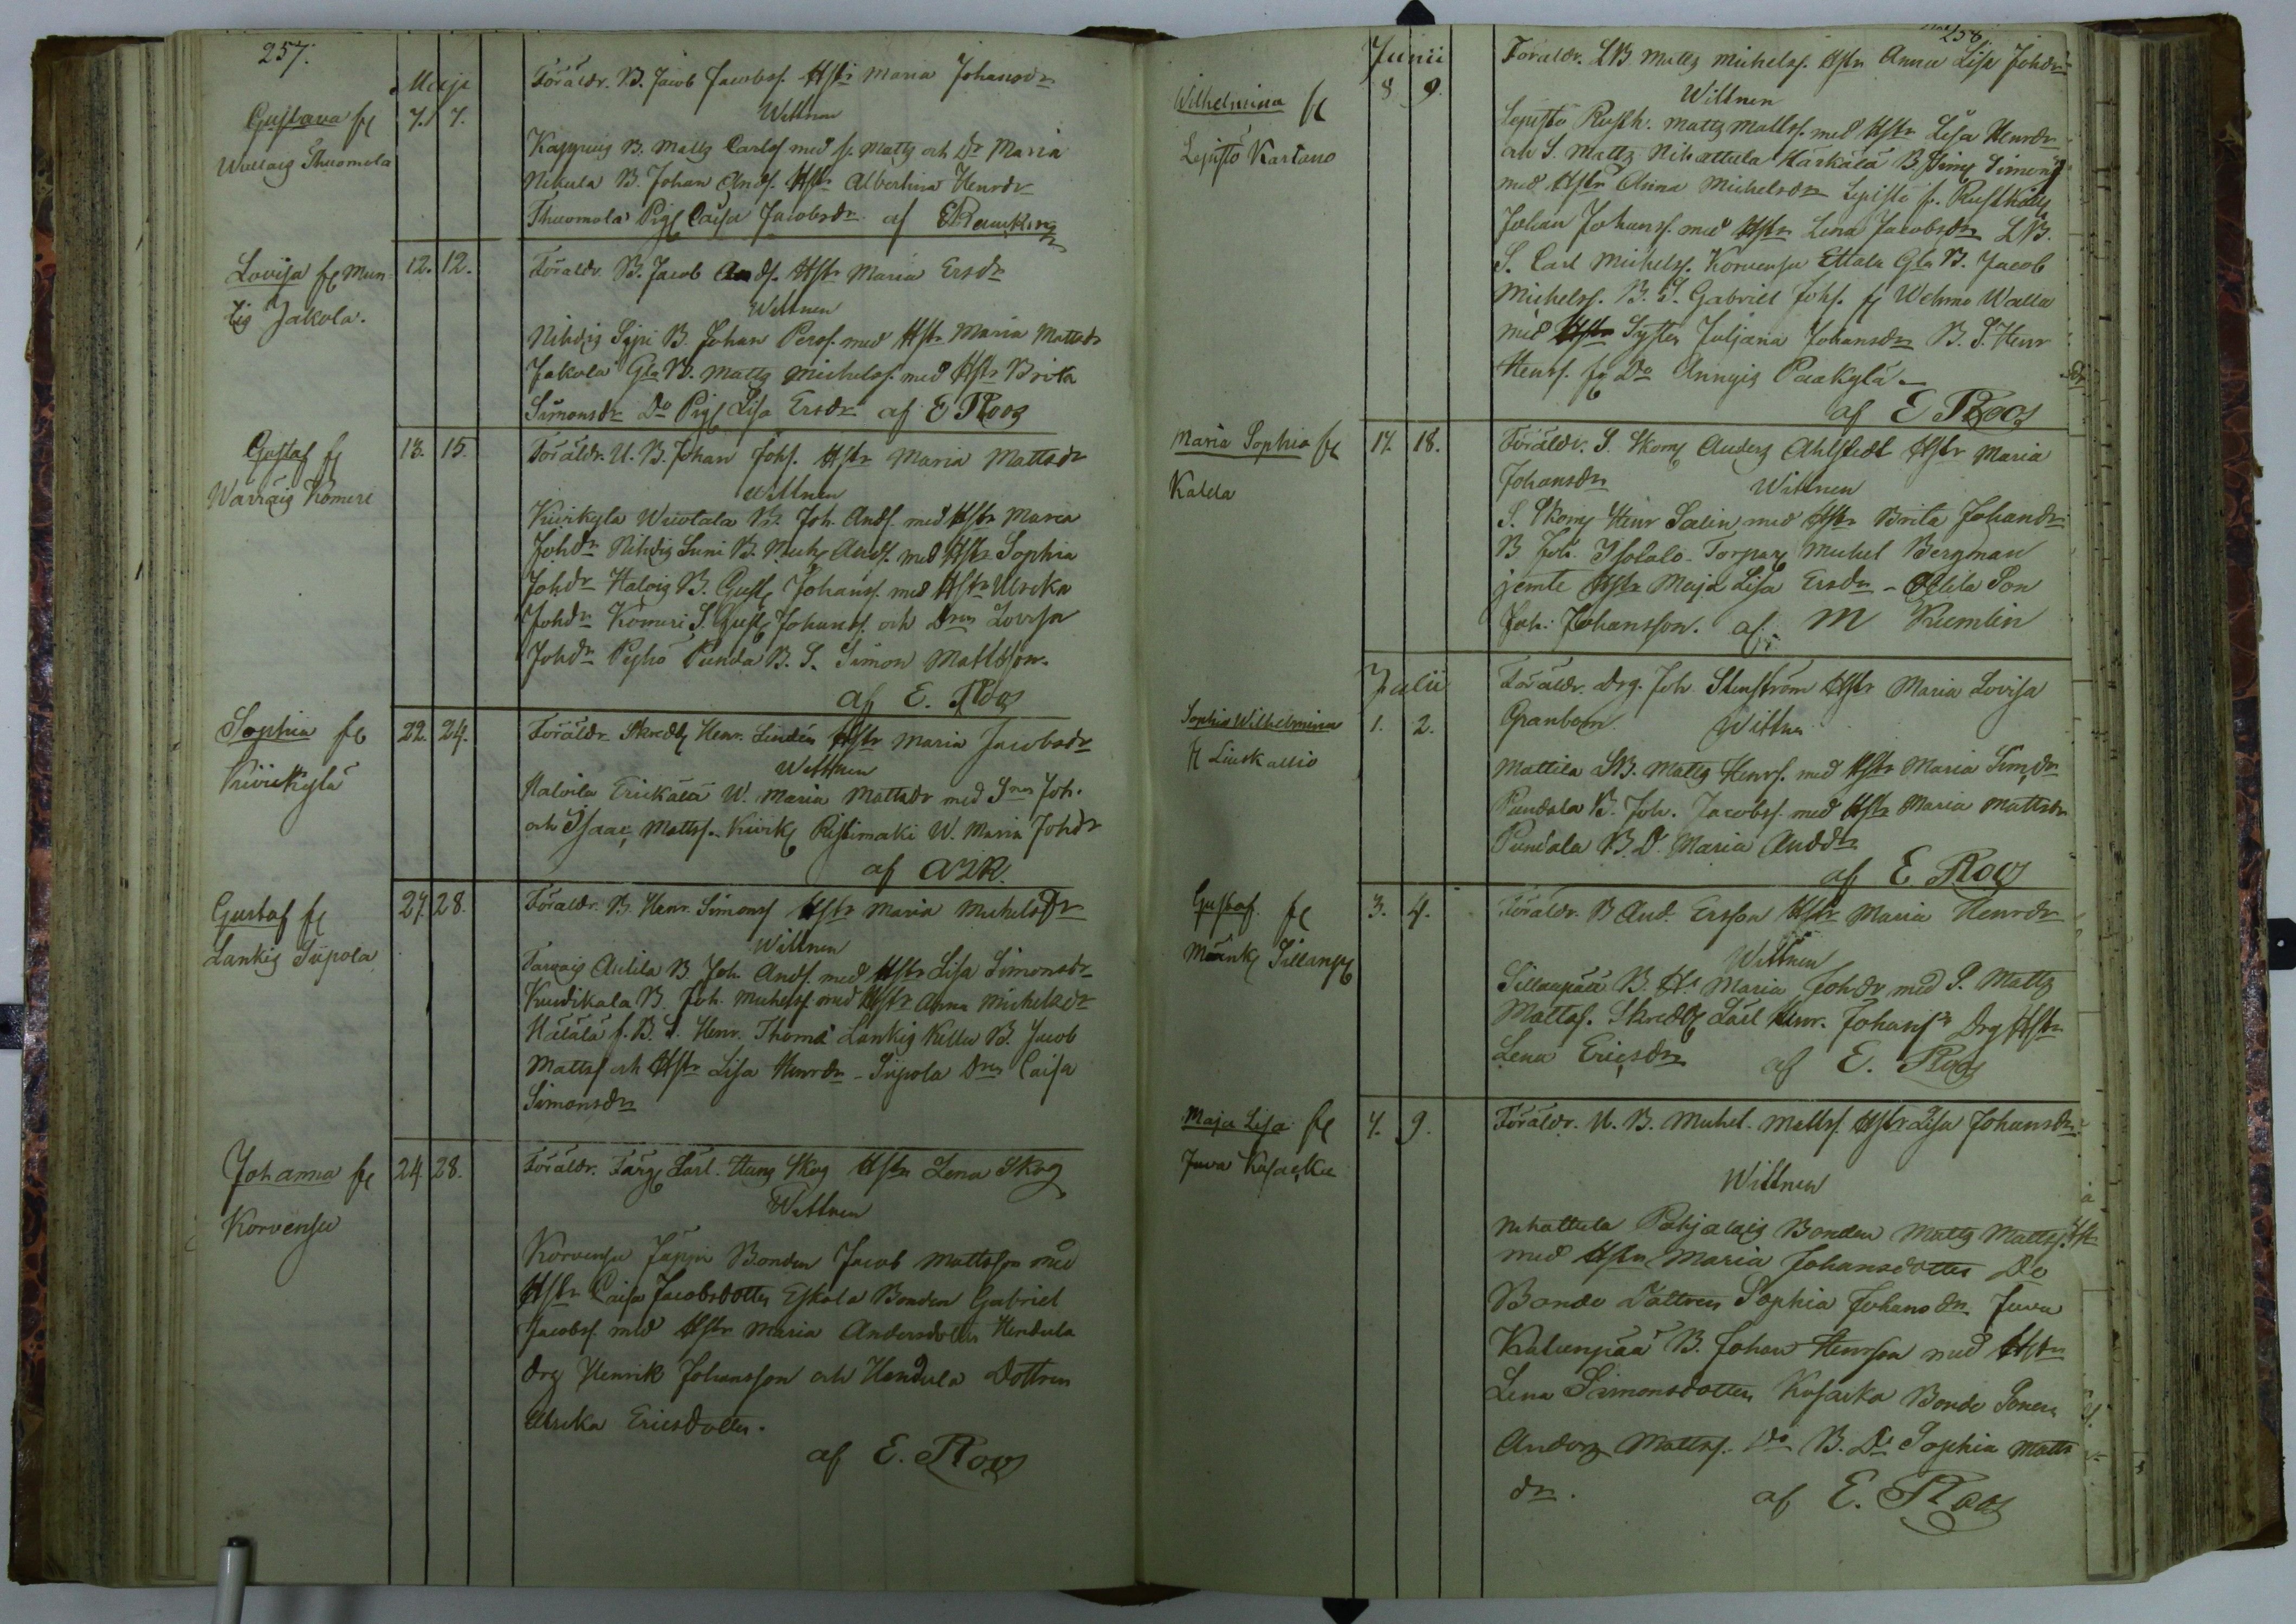 257.
Maji
Gustava fl
Wallaig Thuomola
7. 7.
Föräldr. B. Jacob Jacobss. Hstr Maria Johansdr
Wittnen
Kappuig B. Matts Carlss med s. Matts och Dr Maria
Nikula B. Johan Ands. Hstr Albertina Henrdr
Thuomola Pig Caisa Jacobsdr af
Lovisa fl Mun-
tig Jakola.
12. 12.
Föräldr. B. Jacob Ands. Hstr Maria Ersdr
Wittnen
Nihdig Sippi B. Johan Perss. med Hstr Maria Mattsdr
Jakola Gla B. Matts Michelss. med Hstr Brita
Simonsdr Do Pig Lisa Ersdr af E Roos
Gustaf fl
Warraig Komeri
13. 15.
Föräldr. U. B. Johan Johs. Hstr Maria Mattsdr
Wittnen
Kuirkyla Wiuotala B. Joh. Ands. med Hstr Maria
Johdr Nihdig Suni B. Mich. Ands. med Hstr Sophia
Johdr Haloig B. Gust. Johanss. med Hstr Ulrika
Johdr Komeri S. Gust. Johanss. och Dren Lovisa
Johdr Peyhö Punda B. S. Simon Mattsson.
af E. Roos
Sophia fl
Kuirikyla
22. 24.
Föräldr. Skredd Henr. Linden Hstr Maria Jacobsdr
Wittnen
Haloila Erickala W. Maria Mattsdr med Snr Joh.
och Isaac Mattss. Kuirik Ristimaki W. Maria Johdr
af
Gustaf fl
Lankig Sippola
27. 28.
Föräldr. B. Henr. Simonss Hstr Maria Michelsdr
Wittnen
Anlila B Joh. Ands. med Hstr Lisa Simonsdr
Kuudikala B. Joh. Michelss. med Hstr Anna Michelsdr
Hälälä f. B. S. Henr. Thoms Lankig Kellu B. Jacob
Mattss och Hstr Lisa Henrdr - Sippola Dren Caisa
Simonsdr
Johanna fl
Korvensu
24. 28.
Föräldr. Färg Larl. Hans Skog Hstr Lena Skog
Wittnen
Korvensu Jäppi Bonden Jacob Mattsson med
Hstr Caisa Jacobsdotter Eskola Bonden Gabriel
Jacobss. med Hstr Maria Andersdotter Hendula
drg Henrik Johansson och Hendula Dottren
Ulrika Ericsdotter.
af E. Roos
258.
Junii
Wilhelmina fl
Lepistö Kartano
8 9.
Föräldr. LB Matts Michelss. Hstr Anna Lisa Johdr
Wittnen
Lepistö Rusth. Matts Mattss. med Hstr Lisa Henrdr
och S. Matts Nihattula Härkälä B. Sim Simons
med Hstr Anna Michelsdr Lepistö f. Rusthåll
Johan Johanss. med Hstr Lena Jacobsdr LB.
S. Carl Michelss. Korvensu Ettala Gla B. Jacob
Michelss. B. S. Gabriel Johs. fl Wehmo Walla
med Syster Juljana Johansdr B. S. Henr
Henrs. fl Do Annyig Paakylä
af E Roos
Maria Sophia fl
Kalela
17. 18.
Föräldr. S. Skom Anders Ahlstedt Hstr Maria
Johansdr
Wittnen
S. Skom Henr Salin med Hstr Brita Johandr
B Joh. Isotalo - Torpare Michel Bergman
jemte Hstr Maja Lisa Ersdr - Ollila Son
Joh: Johansson. af M Kumlin
Julii
Sophia Wilhelmina
fl Liuskallio
1. 2.
Föräldr. Drg. Joh. Stenström Hstr Maria Lovisa
Granbom. Wittnen
Mattila LB. Matts Henrs. med Hstr Maria Simdr
Pundola B. Joh. Jacobss. med Hstr Maria Mattsdr
Pundola B. D. Maria Anddr
af E. Roos
Gustaf fl
Männk Sillanp
3. 4.
Föräldr. B And. Ersson Hstr Maria Henrdr
Wittnen
Sillanpää B. Hr Maria Johdr med S. Matts
Mattss. Skredd Lärl Henr. Johanss Drg Hstr
Lena Ericsdr af E. Roos
Maja Lisa fl
Juva Kasacka
7. 9.
Föräldr. U. B. Michel. Mattss. Hstr Lisa Johansdr
Wittnen
Nihattula Pohjalaig Bonden Matts Mattss.
med Hstr Maria Johansdotter Do
Bonde Dottren Sophia Johansdr Juva
Katunpää B. Johan Henrsson med Hstr
Lena Simonsdotter Kasacka Bonde Sonen
Anders Mattss. Do B. Dr Sophia Matts
dr. af E. Roos